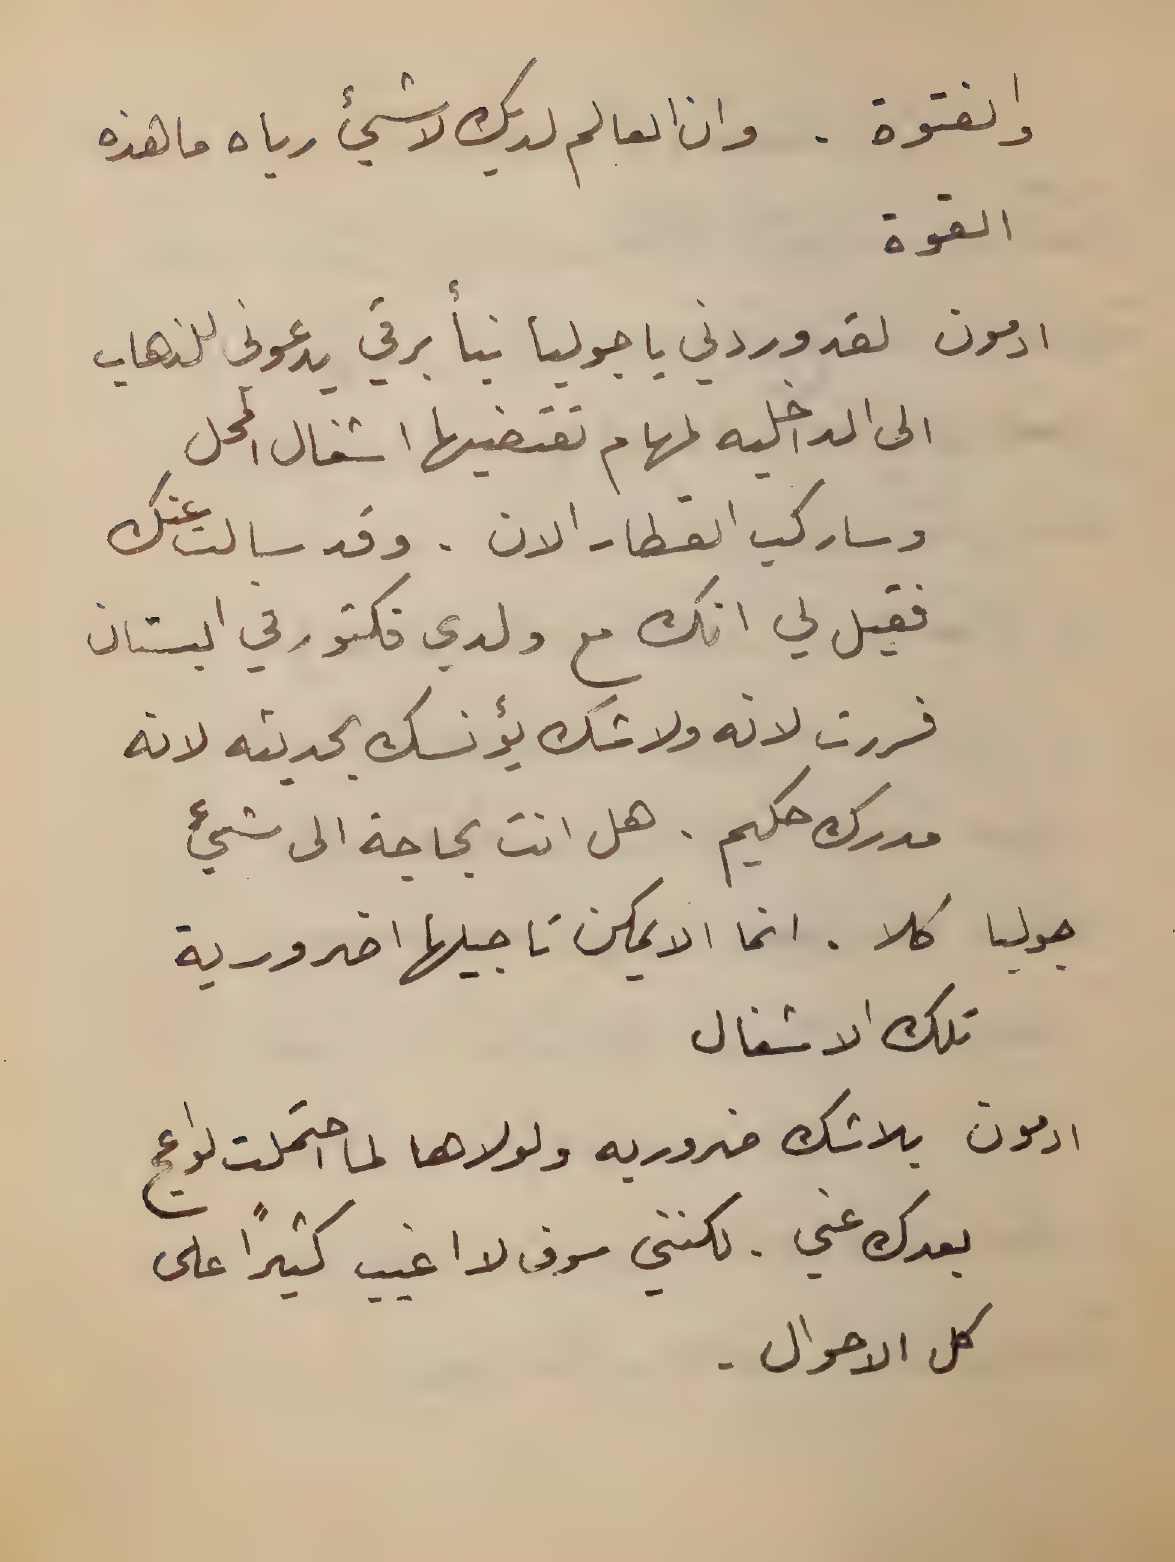 والفتوة . وان العالم لديك لاشيئ رباه ما هذه
القوة
ادمون لقد وردني يا جوليا نبأ برقي يدعوني للذهاب
الى الداخليه لمهام تقتضيها اشغال المحل
وساركب القطار الان . وقد سالت عنك
فقيل لي انك مع ولدي فكتور في البستان
فسررت لانه ولاشك يؤنسك بحديثه لانه
مدرك حكيم . هل انت بحاجة الى شيئ
جوليا كلا . انما الا يمكن تاجيلها اضرورية
تلك الاشغال
ادمون بلاشك ضروريه ولولاها لما احتملت لواعج
بعدك عني . لكنني سوف لا اغيب كثيرًا على
كل الاحوال .